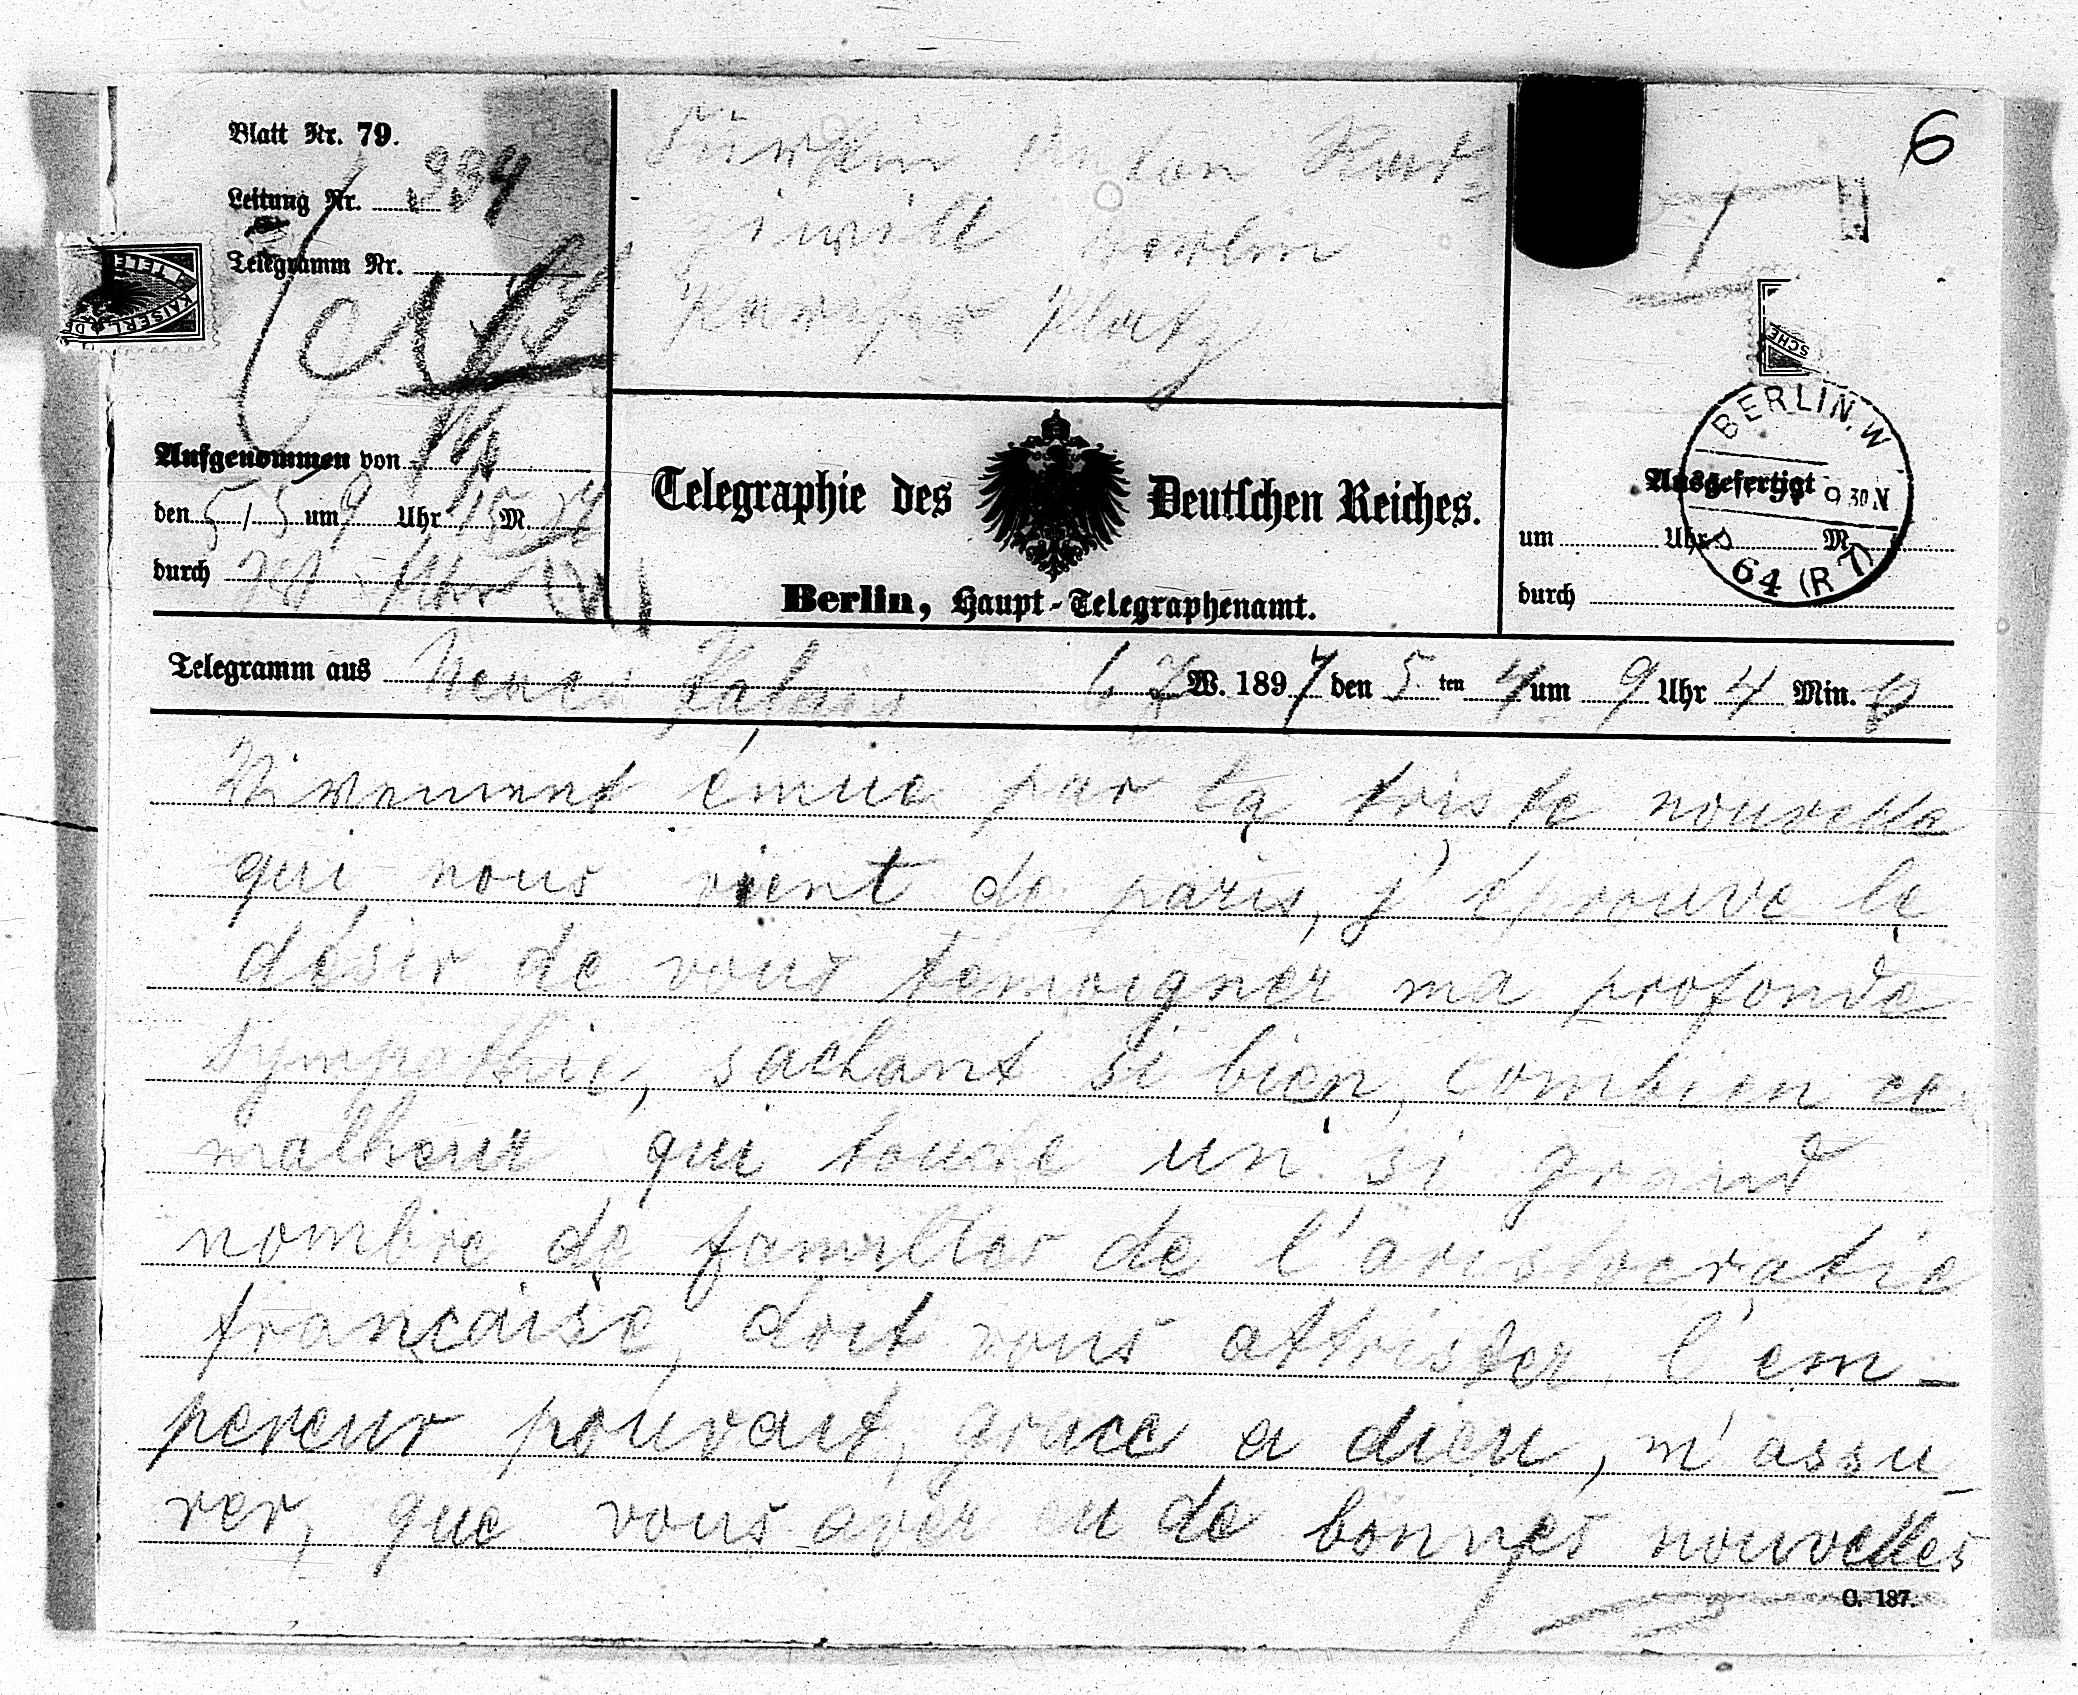 6
Blatt Nr. 79.
Leitung Nr. 334
Telegramm Nr.
Fürstin Anton Rad-
ziwill Berlin
Pariser Platz
Aufgenommen von
den 5/5 um 9 Uhr 15 M.
durch
Telegraphie des Deutschen Reiches.
Berlin, Haupt-Telegraphenamt.
BERLIN. W
9 30 N
64 (R 7)
Ausgefertigt
um Uhr M.
durch
Telegramm aus Neues Palais 67 W. 1897 den 5 ten um 9 Uhr 4 Min.
Vivement émue par la triste nouvelle
qui nous vient de paris, j'éprouve le
désir de vous témoigner ma profonde
sympathie, sachant si bien, combien ce
malheur qui touche un si grand
nombre de familles de l'aristocratie
française, doit vous attrister, l'em-
pereur pouvait, grace a dieu, m'assu-
rer, que vous avez eu de bonnes nouvelles
C. 187.